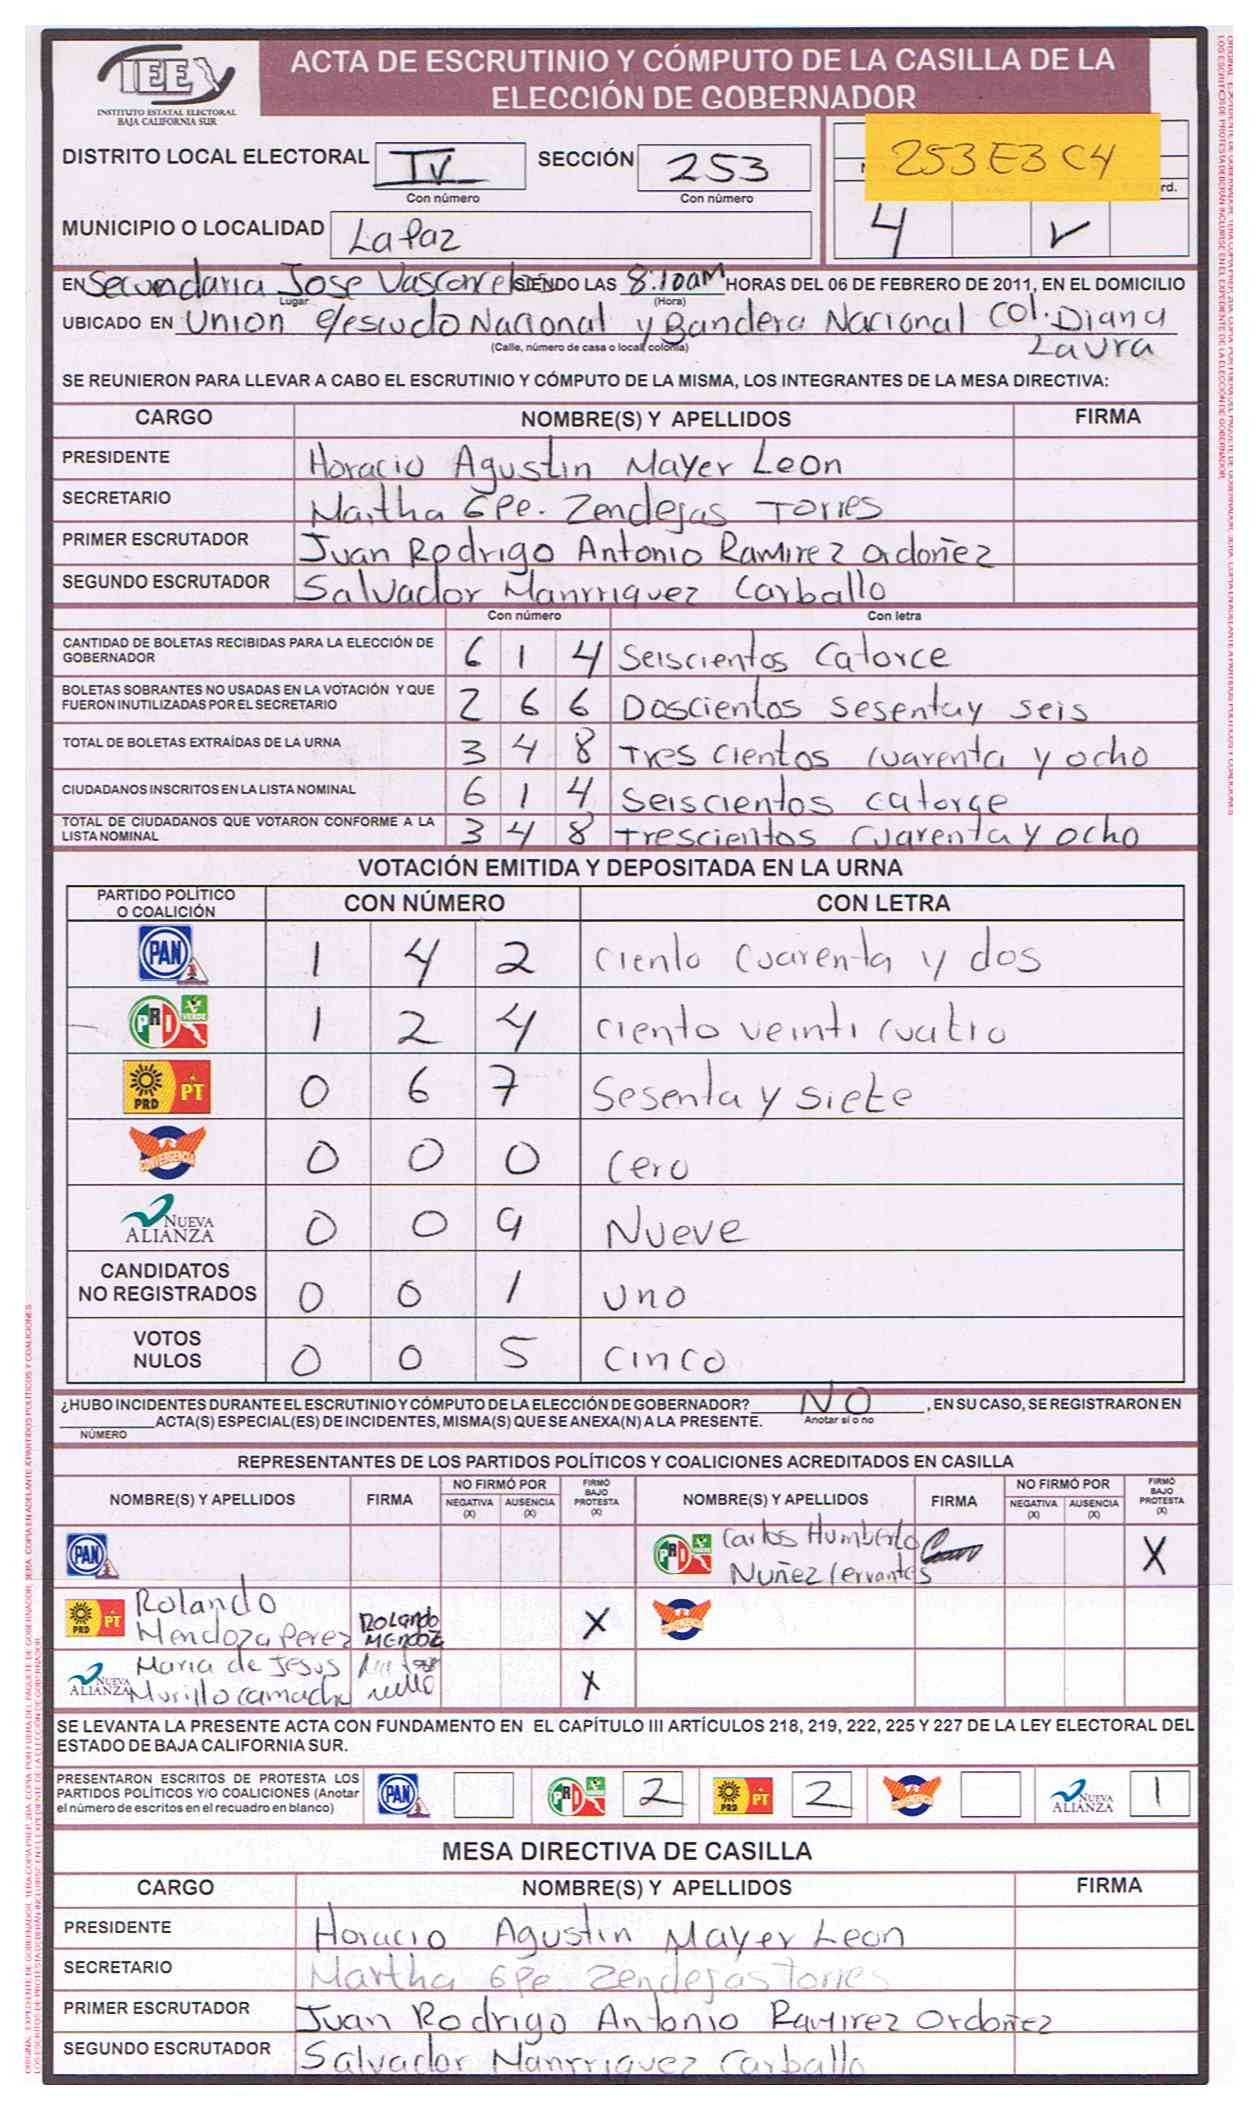 ACTA DE ESCRUTINIO Y CÓMPUTO DE LA CASILLA DE LA
ELECCIÓN DE GOBERNADOR
IEE
INSTITUTO ESTATAL ELECTORAL
BAJA CALIFORNIA SUR
DISTRITO LOCAL ELECTORAL IV SECCIÓN 253
Con número Con número
253 E3 C4
rd.
4 ✓
MUNICIPIO O LOCALIDAD La Paz
EN Secundaria Jose Vasconcelos SIENDO LAS 8:10am HORAS DEL 06 DE FEBRERO DE 2011, EN EL DOMICILIO
Lugar (Hora)
UBICADO EN Union e/escudo Nacional y Bandera Nacional Col. Diana
Laura
(Calle, número de casa o local, colonia)
SE REUNIERON PARA LLEVAR A CABO EL ESCRUTINIO Y CÓMPUTO DE LA MISMA, LOS INTEGRANTES DE LA MESA DIRECTIVA:
CARGO NOMBRE(S) Y APELLIDOS FIRMA
PRESIDENTE Horacio Agustin Mayer Leon
SECRETARIO Martha Gpe. Zendejas Torres
PRIMER ESCRUTADOR Juan Rodrigo Antonio Ramirez Ordoñez
SEGUNDO ESCRUTADOR Salvador Manrriquez Carballo
Con número Con letra
CANTIDAD DE BOLETAS RECIBIDAS PARA LA ELECCIÓN DE
GOBERNADOR 6 1 4 Seiscientos Catorce
BOLETAS SOBRANTES NO USADAS EN LA VOTACIÓN Y QUE
FUERON INUTILIZADAS POR EL SECRETARIO 2 6 6 Doscientos Sesenta y seis
TOTAL DE BOLETAS EXTRAÍDAS DE LA URNA 3 4 8 Tres cientos cuarenta y ocho
CIUDADANOS INSCRITOS EN LA LISTA NOMINAL 6 1 4 Seiscientos catorce
TOTAL DE CIUDADANOS QUE VOTARON CONFORME A LA
LISTA NOMINAL 3 4 8 Trescientos cuarenta y ocho
VOTACIÓN EMITIDA Y DEPOSITADA EN LA URNA
PARTIDO POLÍTICO
O COALICIÓN CON NÚMERO CON LETRA
PAN 1 4 2 Ciento Cuarenta y dos
PRI VERDE 1 2 4 Ciento veinti cuatro
PRD PT 0 6 7 Sesenta y siete
CONVERGENCIA 0 0 0 Cero
NUEVA ALIANZA 0 0 9 Nueve
CANDIDATOS
NO REGISTRADOS 0 0 1 uno
VOTOS
NULOS 0 0 5 Cinco
¿HUBO INCIDENTES DURANTE EL ESCRUTINIO Y CÓMPUTO DE LA ELECCIÓN DE GOBERNADOR? NO , EN SU CASO, SE REGISTRARON EN
ACTA(S) ESPECIAL(ES) DE INCIDENTES, MISMA(S) QUE SE ANEXA(N) A LA PRESENTE. Anotar sí o no
NÚMERO
REPRESENTANTES DE LOS PARTIDOS POLÍTICOS Y COALICIONES ACREDITADOS EN CASILLA
NOMBRE(S) Y APELLIDOS FIRMA NO FIRMÓ POR NEGATIVA (X) AUSENCIA (X) FIRMÓ BAJO PROTESTA (X) NOMBRE(S) Y APELLIDOS FIRMA NO FIRMÓ POR NEGATIVA (X) AUSENCIA (X) FIRMÓ BAJO PROTESTA (X)
PAN PRI VERDE Carlos Humberto
Nuñez Cervantes X
PRD PT Rolando
Mendoza Perez Rolando
Mendoz X CONVERGENCIA
NUEVA ALIANZA Maria de Jesus
Murillo camacho X
SE LEVANTA LA PRESENTE ACTA CON FUNDAMENTO EN EL CAPÍTULO III ARTÍCULOS 218, 219, 222, 225 Y 227 DE LA LEY ELECTORAL DEL
ESTADO DE BAJA CALIFORNIA SUR.
PRESENTARON ESCRITOS DE PROTESTA LOS
PARTIDOS POLÍTICOS Y/O COALICIONES (Anotar
el número de escritos en el recuadro en blanco) PAN PRI VERDE 2 PRD PT 2 CONVERGENCIA NUEVA ALIANZA 1
MESA DIRECTIVA DE CASILLA
CARGO NOMBRE(S) Y APELLIDOS FIRMA
PRESIDENTE Horacio Agustin Mayer Leon
SECRETARIO Martha Gpe Zendejas Torres
PRIMER ESCRUTADOR Juan Rodrigo Antonio Ramirez Ordoñez
SEGUNDO ESCRUTADOR Salvador Manrriquez Carballo